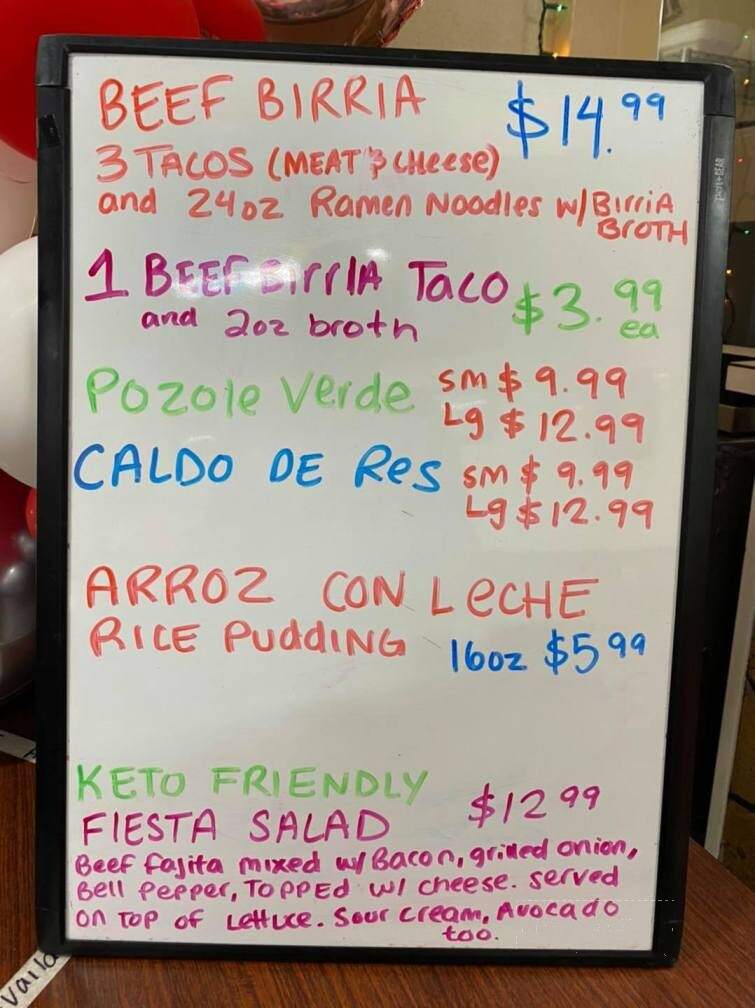 BEEF BIRRIA $14.99
3 TACOS (MEAT & CHeese)
and 24oz Ramen Noodles w/BirriA
BroTH
1 BEEF BirrIA Taco $3.99
and 2oz broth ea
Pozole Verde sm $9.99
Lg $12.99
CALDO DE Res sm $9.99
Lg $12.99
ARROZ CON LeCHE
RICE PUddING 16oz $5.99
KETO FRIENDLY
FIESTA SALAD $12.99
Beef fajita mixed w/ Bacon, grilled onion,
Bell Pepper, TOPPED w/ cheese. served
on Top of Lettuce. Sour cream, Avocado
too.